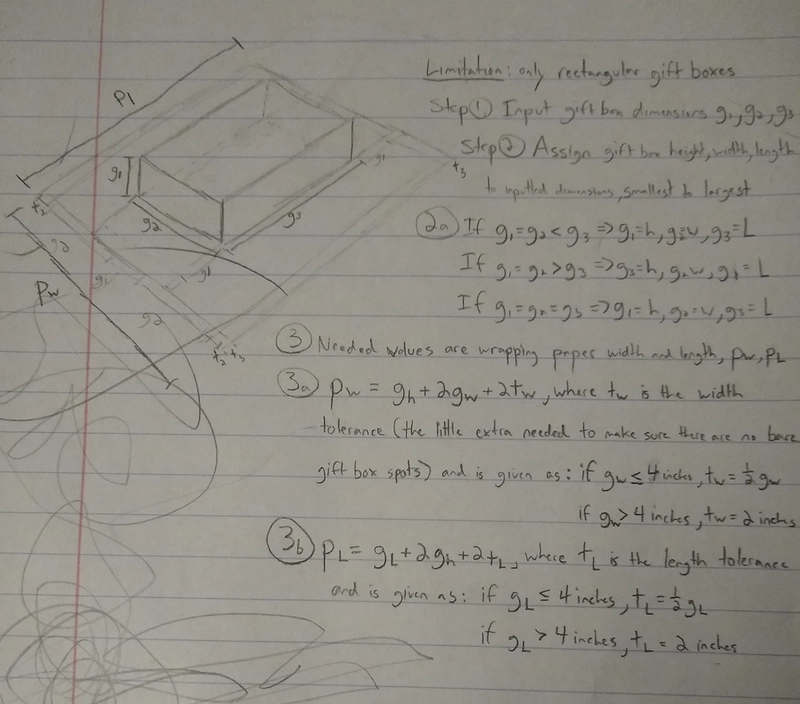 Limitation: only rectangular gift boxes
Step ① Input gift box dimensions g₁, g₂, g₃
Step ② Assign gift box height, width, length
to inputted dimensions, smallest to largest
2a If g₁=g₂<g₃ => g₁=h, g₂=w, g₃=L
If g₁=g₂>g₃ => g₃=h, g₂=w, g₁=L
If g₁=g₂=g₃ => g₁=h, g₂=w, g₃=L
③ Needed values are wrapping paper width and length, Pw, PL
3a Pw = gh + 2gw + 2tw, where tw is the width
tolerance (the little extra needed to make sure there are no bare
gift box spots) and is given as: if gw ≤ 4 inches, tw = ½ gw
if gw > 4 inches, tw = 2 inches
3b PL = gL + 2gh + 2tL, where tL is the length tolerance
and is given as: if gL ≤ 4 inches, tL = ½ gL
if gL > 4 inches, tL = 2 inches
Pl
g₁
g₂
g₃
g₁
t₃
t₂
g₂
g₁
g₁
Pw
g₂
t₂
t₃